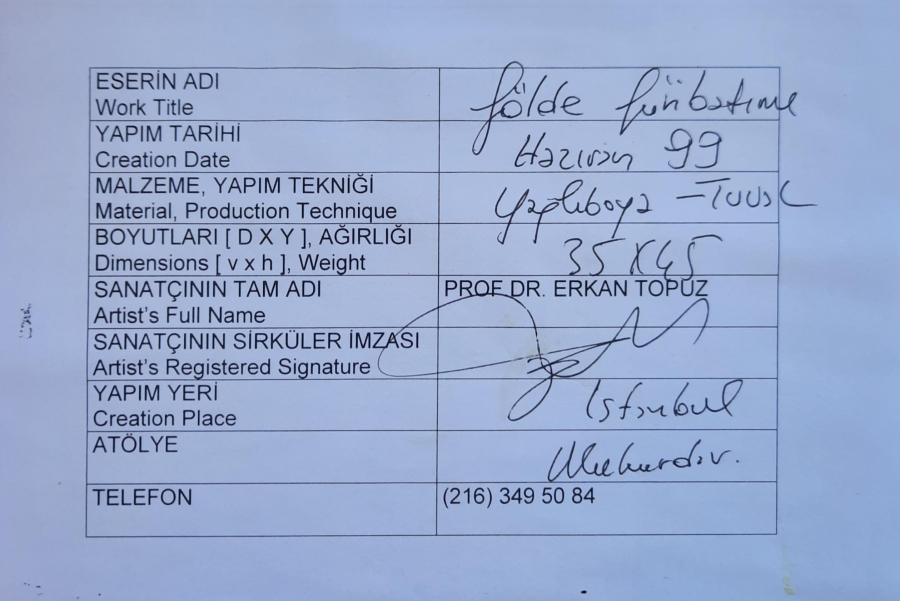 ESERİN ADI
Work Title
Gölde Günbatımı
YAPIM TARİHİ
Creation Date
Haziran 99
MALZEME, YAPIM TEKNİĞİ
Material, Production Technique
Yağlıboya - Tuval
BOYUTLARI [ D X Y ], AĞIRLIĞI
Dimensions [ v x h ], Weight
35 X 45
SANATÇININ TAM ADI
Artist's Full Name
PROF DR. ERKAN TOPUZ
SANATÇININ SİRKÜLER İMZASI
Artist's Registered Signature
YAPIM YERİ
Creation Place
Istanbul
ATÖLYE
TELEFON
(216) 349 50 84